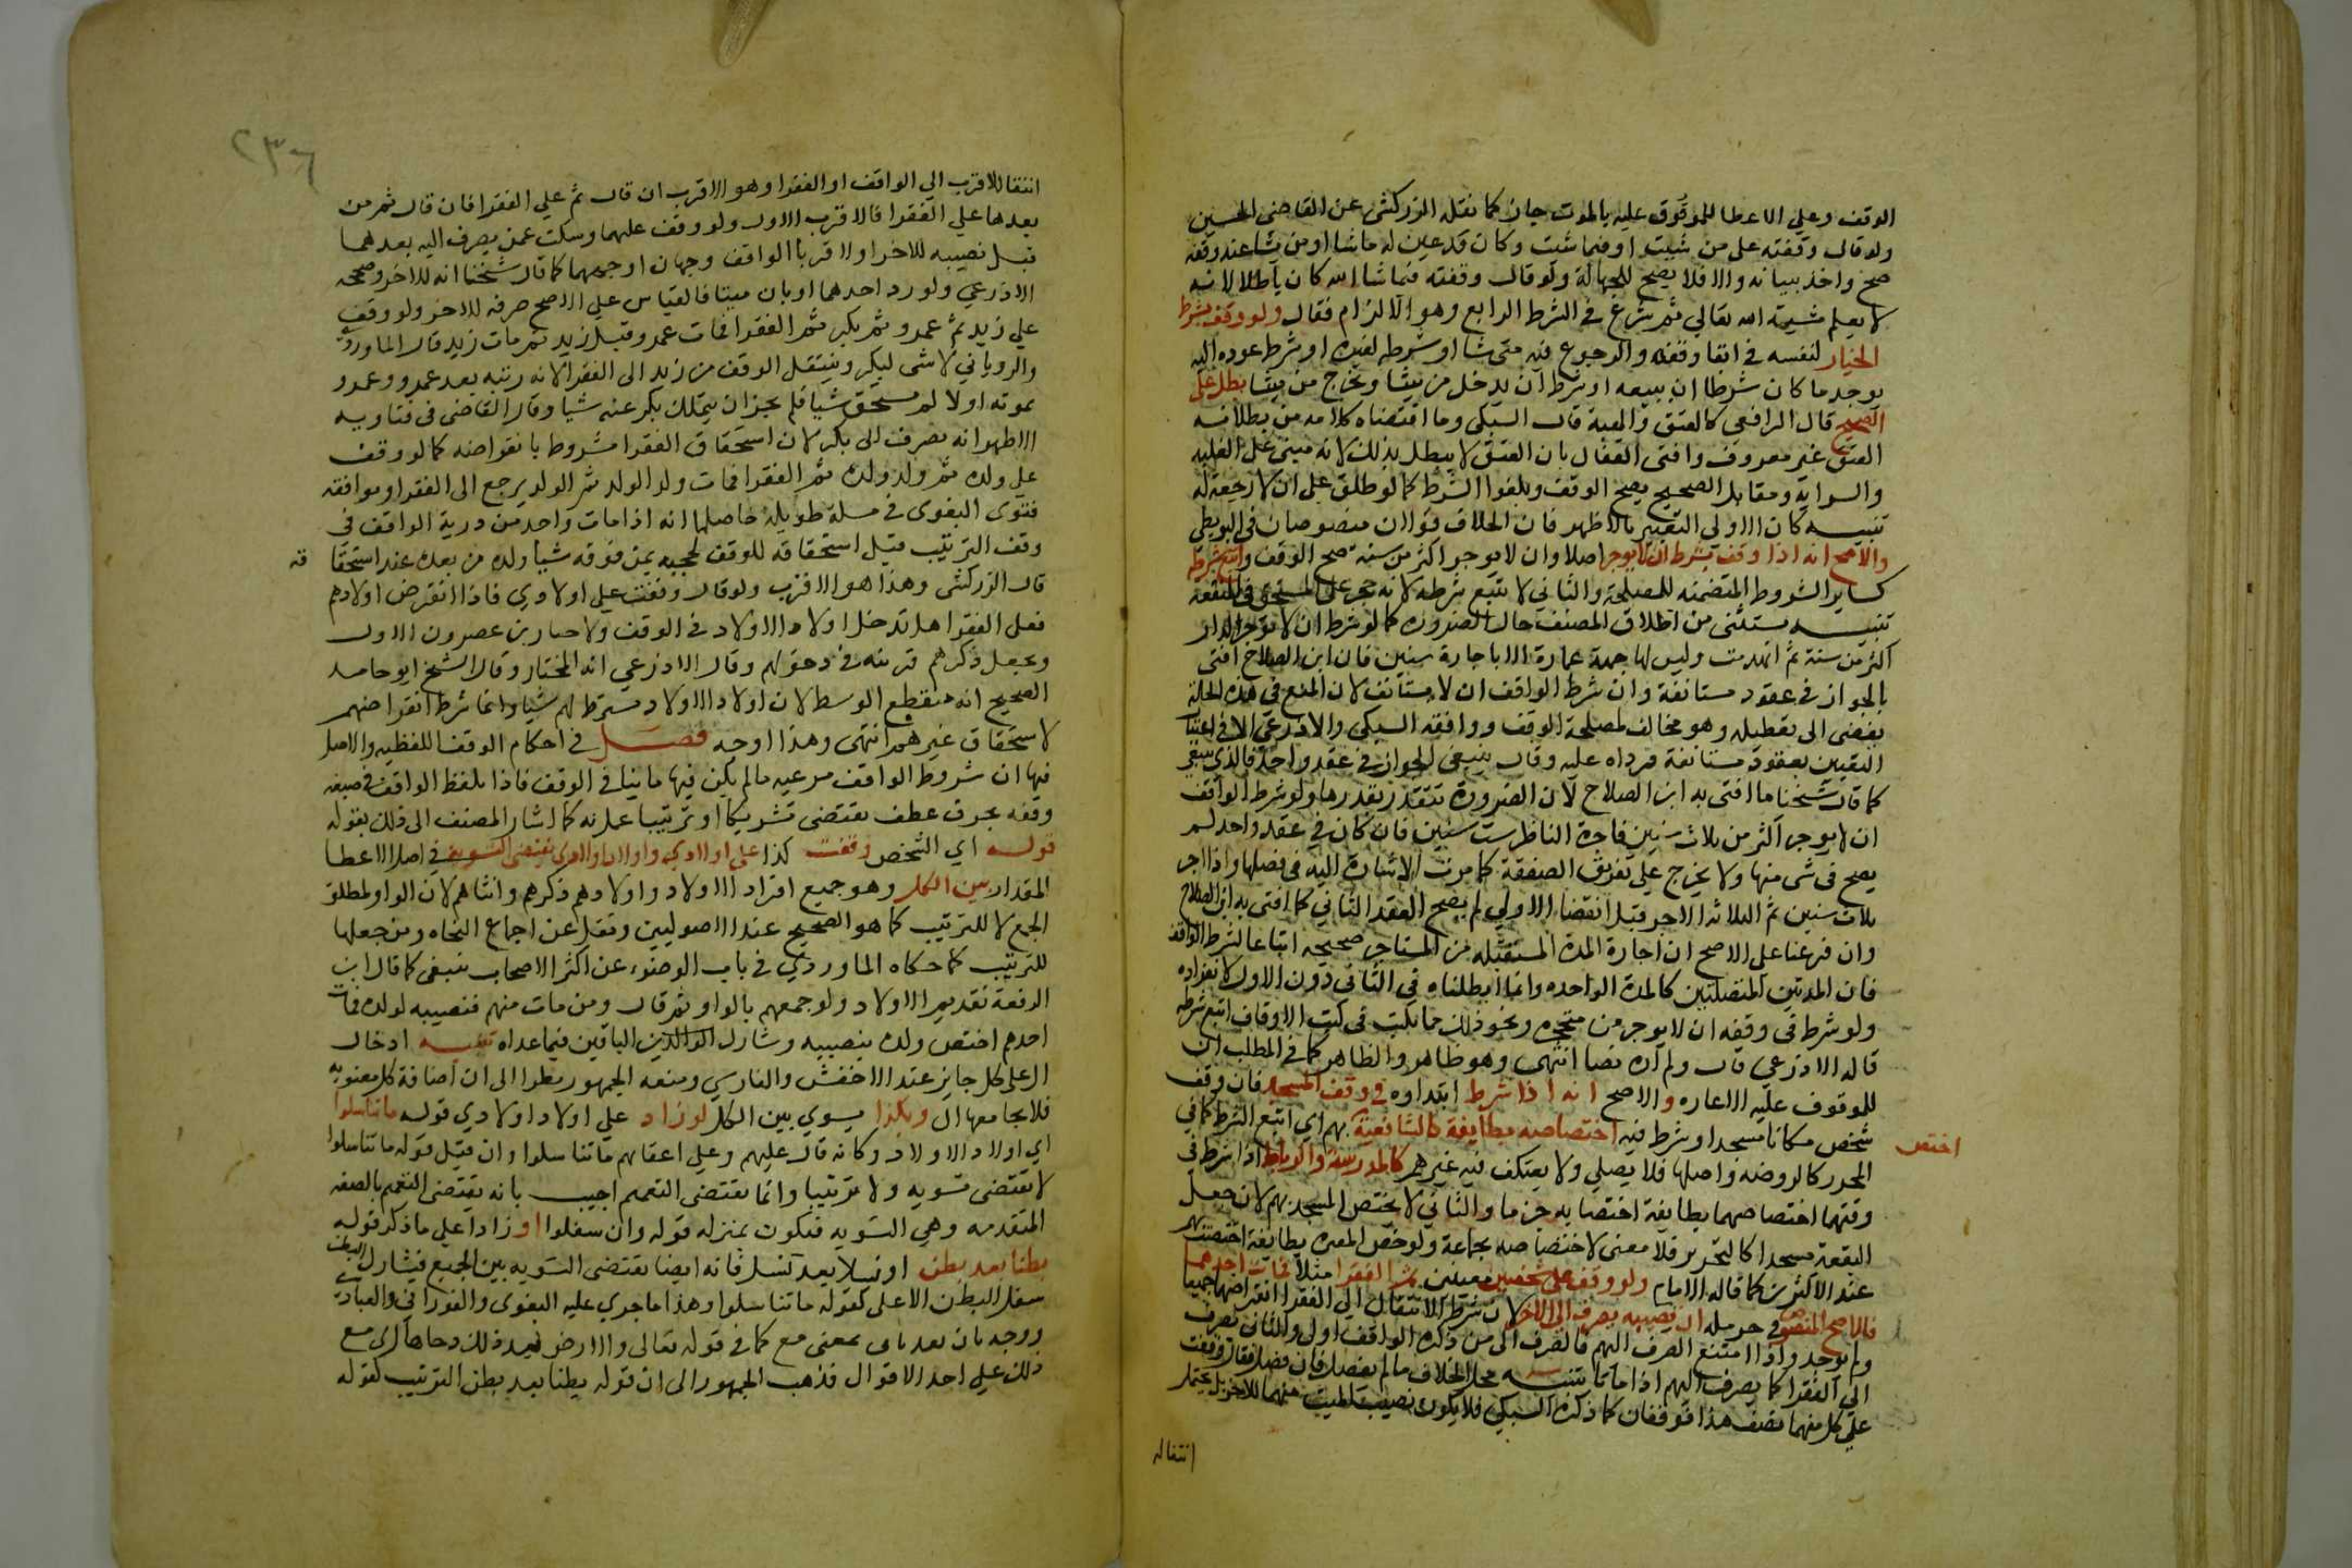 الوقف وعلي الاعطا للموقوف عليه بالموت جاز كما نقله الزركشي عن القاضي الحسين
ولو قال وقفته على من شيت او فيما شيت وكان قد عين له ما شا او من يشا عند وقفه
صح واخذ ببيانه والا فلا يصح للجهالة ولو قال وقفته فيما شا الله كان باطلا لانه
لا يعلم مشيية الله تعالي ثم شرع في الشرط الرابع وهو الالزام فقال ولو وقف بشرط
الخيار لنفسه في ابقا وقفه والرجوع فيه متى شا او شرطه لغيره او شرط عوده اليه
بوجه ما كان شرطا ان يبيعه او شرط ان يدخل من يشا ويخرج من يشا بطل على
الصحيح قال الرافعي كالعتق والهبة قال السبكي وما اقتضاه كلامه من بطلان
العتق غير معروف وافتى القفال بان العتق لا يبطل بذلك لانه مبني على الغلبه
والسراية ومقابل الصحيح يصح الوقف ويلغوا الشرط كما لو طلق على ان لا رجعة له
تنبيه كان الاولي التعبير بالاظهر فان الخلاف قولان منصوصان في البويطي
والاصح انه اذا وقف بشرط ان لا يوجر اصلا وان لا يوجر اكثر من سنة صح الوقف واتبع شرطه
كساير الشروط المتضمنه للمصلحة والثاني لا يتبع شرطه لانه حجر على المستحق في المنفعة
تنبيه يستثنى من اطلاق المصنف حال الضروره كما لو شرط ان لا توجر الدار
اكثر من سنة ثم انهدمت وليس لها جهة عمارة الا باجارة سنين فان ابن الصلاح افتى
بالجواز في عقود مستانفة وان شرط الواقف ان لا يستانف لان المنع في هذه الحالة
يفضى الى تعطيله وهو مخالف لمصلحة الوقف ووافقه السبكي والاذرعي الا في اعتبار
التقيين بعقود مستانفة فرداه عليه وقال ينبغي الجواز في عقد واحد فالذي ينبغي
كما قال شيخنا ما افتى به ابن الصلاح لان الضرورة تتقدر بقدرها ولو شرط الواقف
ان لا يوجر اكثر من ثلاث سنين فاجره الناظر ست سنين فان كان في عقد واحد لم
يصح في شى منها ولا يخرج على تفريق الصفقة كما مرت الاشارة اليه في فصلها واذا اجر
ثلاث سنين ثم الثلاثه الاخر قبل انقضا الاولي لم يصح العقد الثاني كما افتى به ابن الصلاح
وان فرعنا على الاصح ان اجارة المدة المستقبله من المستاجر صحيحه اتباعا لشرط الواقف
فان المدتين المتصلتين كالمدة الواحده وانما ابطلناه في الثاني دون الاول لانفراده
ولو شرط في وقفه ان لا يوجر من متجوه ونحو ذلك مما يكتب في كتب الاوقاف اتبع شرطه
قاله الاذرعي قال ولم اره نصا انتهى وهو ظاهر والظاهر كما في المطلب ان
للموقوف عليه الاعاره والاصح انه اذا شرط ابتداوه في وقف المسجد فان وقف
شخص مكانا مسجدا وشرط فيه اختصاصه بطايفة كالشافعية بهم اي اتبع الشرط كما في
اختص
المحرر كالروضه واصلها فلا يصلي ولا يعتكف فيه غيرهم كالمدرسة والرباط اذا شرط في
وقفهما اختصاصهما بطايفة اختصا بهم جزما والثاني لا يختص المسجد بهم لان جعل
البقعة مسجدا كالتحرير فلا معنى لاختصاصه بجماعة ولو خص المقبره بطايفة اختصت بهم
عند الاكثرين كما قاله الامام ولو وقف على شخصين معينين ثم الفقرا مثلا فمات احدهما
فالاصح المنصوص في حرمله ان نصيبه يصرف الى الاخر لان شرط الانتقال الي الفقرا انقراضهما جميعا
ولم يوجد واذا امتنع الصرف اليهم فالصرف الى من ذكره الواقف اولى والثاني يصرف
الي الفقرا كما يصرف اليهم اذا ماتا تنبيه محل الخلاف ما لم يفصل فان فصل فقال وقفت
على كل منهما نصف هذا فوقفان كما ذكره السبكي فلا يكون نصيب الميت منهما للاخر بل يحتمل
انتقاله
٢٣٦
انتقاله لاقرب الي الواقف او الفقرا وهو الاقرب ان قال ثم علي الفقرا فان قال ثم من
بعدهما علي الفقرا فالاقرب الاول ولو وقف عليهما وسكت عمن يصرف اليه بعدهما
قبل نصيبه للاخر او لاقربا الواقف وجهان اوجههما كما قال شيخنا انه للاخر وصححه
الاذرعي ولو رد احدهما او بان ميتا فالقياس علي الاصح صرفه للاخر ولو وقف
علي زيد ثم عمرو ثم بكر ثم الفقرا فمات عمرو قبل زيد ثم مات زيد قال الماوردي
والروياني لا شى لبكر وينتقل الوقف من زيد الى الفقرا لانه رتبه بعد عمرو وعمرو
بموته اولا لم يستحق شيا فلم يجز ان يتملك بكر عنه شيا وقال القاضي في فتاويه
الاظهر انه يصرف الى بكر لان استحقاق الفقرا مشروط بانقراضه كما لو وقف
على ولده ثم ولد ولده ثم الفقرا فمات ولد الولد ثم الولد يرجع الى الفقرا ويوافقه
فتوى البغوي في مسلة طويله حاصلها انه اذا مات واحد من ذرية الواقف في
وقف الترتيب قبل استحقاقه للوقف لحجبه بمن فوقه شيا ولده من بعده عند استحقا
قه
قال الزركشي وهذا هو الاقرب ولو قال وقفت علي اولادي فاذا انقرض اولادهم
فعلى الفقرا هل تدخل اولاد الاولاد في الوقف ولا حيار بن عصرون الاول
ويجعل ذكرهم قرينه في دخولهم وقال الاذرعي انه المختار وقال الشيخ ابو حامد
الصحيح انه منقطع الوسط لان اولاد الاولاد لم يشترط لهم شيا وانما شرط انقراضهم
لاستحقاق غيرهم انتهى وهذا اوجه فصل في احكام الوقف اللفظيه والاصل
فيها ان شروط الواقف مرعيه مالم يكن فيها ما ينافي الوقف فاذا تلفظ الواقف في صيغه
وقفه بحرف عطف يقتضى تشريكا او ترتيبا عمل به كما اشار المصنف الى ذلك بقوله
قوله اي الشخص وقفت كذا على اولادي واولاد اولادي يقتضى التسوية في اصل الاعطا
المقدار بين الكل وهو جميع افراد الاولاد واولادهم ذكرهم وانثاهم لان الواو لمطلق
الجمع لا للترتيب كما هو الصحيح عند الاصوليين ونقل عن اجماع النحاه ومن جعلها
للترتيب كما حكاه الماوردي في باب الوضوء عن اكثر الاصحاب ينبغي كما قال ابن
الرفعة تقديم الاولاد ولو جمعهم بالواو ثم قال ومن مات منهم فنصيبه لولده فمات
احدهم اختص ولده بنصيبه وشارك الوالدين الباقين فيما عداه تنبيه ادخال
ال على كل جايز عند الاخفش والفارسي ومنعه الجمهور نظرا الى ان اضافة كل معنويه
فلا يجامعها ال وبكذا يسوي بين الكل لو زاد علي اولاد اولادي قوله ما تناسلوا
اي اولاد الاولاد وكانه قال عليهم وعلي اعقابهم ما تناسلوا وان قيل قوله ما تناسلوا
لا يقتضى تسويه ولا ترتيبا وانما يقتضى التعميم اجيب بانه يقتضى التعميم بالصفه
المتقدمه وهي التسويه فيكون بمنزله قوله وان سفلوا او زاد علي ما ذكر قوله
بطنا بعد بطن او نسلا بعد نسل فانه ايضا يقتضى التسويه بين الجميع فيشارك البطن
سفل البطن الاعلى كقوله ما تناسلوا وهذا ما جرى عليه البغوي والفوراني والعبادي
ووجه بان بعد تاتى بمعنى مع كما في قوله تعالى والارض بعد ذلك دحاها اى مع
ذلك علي احد الاقوال فذهب الجمهور الى ان قوله بطنا بعد بطن الترتيب كقوله